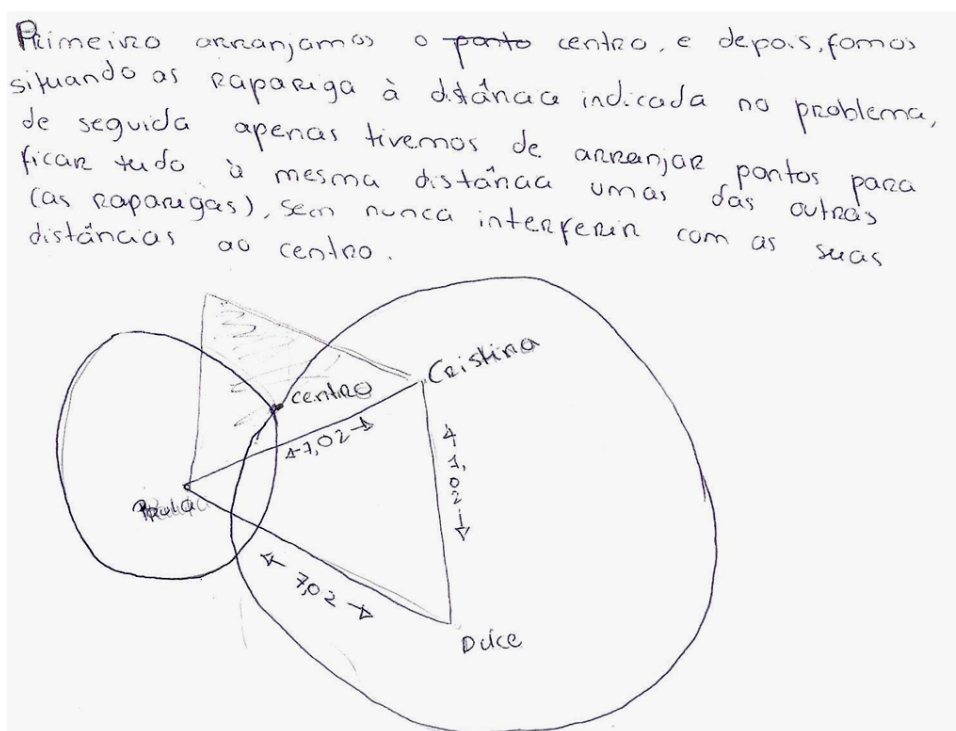 Primeiro arranjamos o ponto centro, e depois, fomos
situando as rapariga à distância indicada no problema,
de seguida apenas tivemos de arranjar pontos para
ficar tudo à mesma distância umas das outras
(as raparigas), sem nunca interferir com as suas
distâncias ao centro.
Cristina
centro
7,02
7,02
Paula
7,02
Dulce